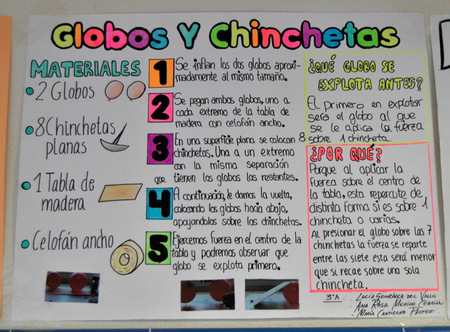 Globos Y Chinchetas
MATERIALES
2 Globos
8 Chinchetas
planas
1 Tabla de
madera
Celofán ancho
1
Se inflan los dos globos aproxi-
madamente al mismo tamaño.
2
Se pegan ambos globos, uno a
cada extremo de la tabla de
madera con celofán ancho.
3
En una superficie plana se colocan 8
chinchetas. Una a un extremo
con la misma separación
que tienen los globos las restantes.
4
A continuación, le damos la vuelta,
colocando los globos hacia abajo,
apoyándolos sobre las chinchetas.
5
Ejercemos fuerza en el centro de la
tabla y podremos observar que
globo se explota primero.
¿QUÉ GLOBO SE
EXPLOTA ANTES?
El primero en explotar
será el globo al que
se le aplica la fuerza
sobre 1 chincheta.
¿POR QUÉ?
Porque al aplicar la
fuerza sobre el centro de
la tabla, esta repercute de
distinta forma si es sobre 1
chincheta o varias.
Al presionar el globo sobre las 7
chinchetas la fuerza se reparte
entre las siete esta será menor
que si recae sobre una sola
chincheta.
3ºA
Lucía González del Valle
Ana Rosa Merino
María Cantarero